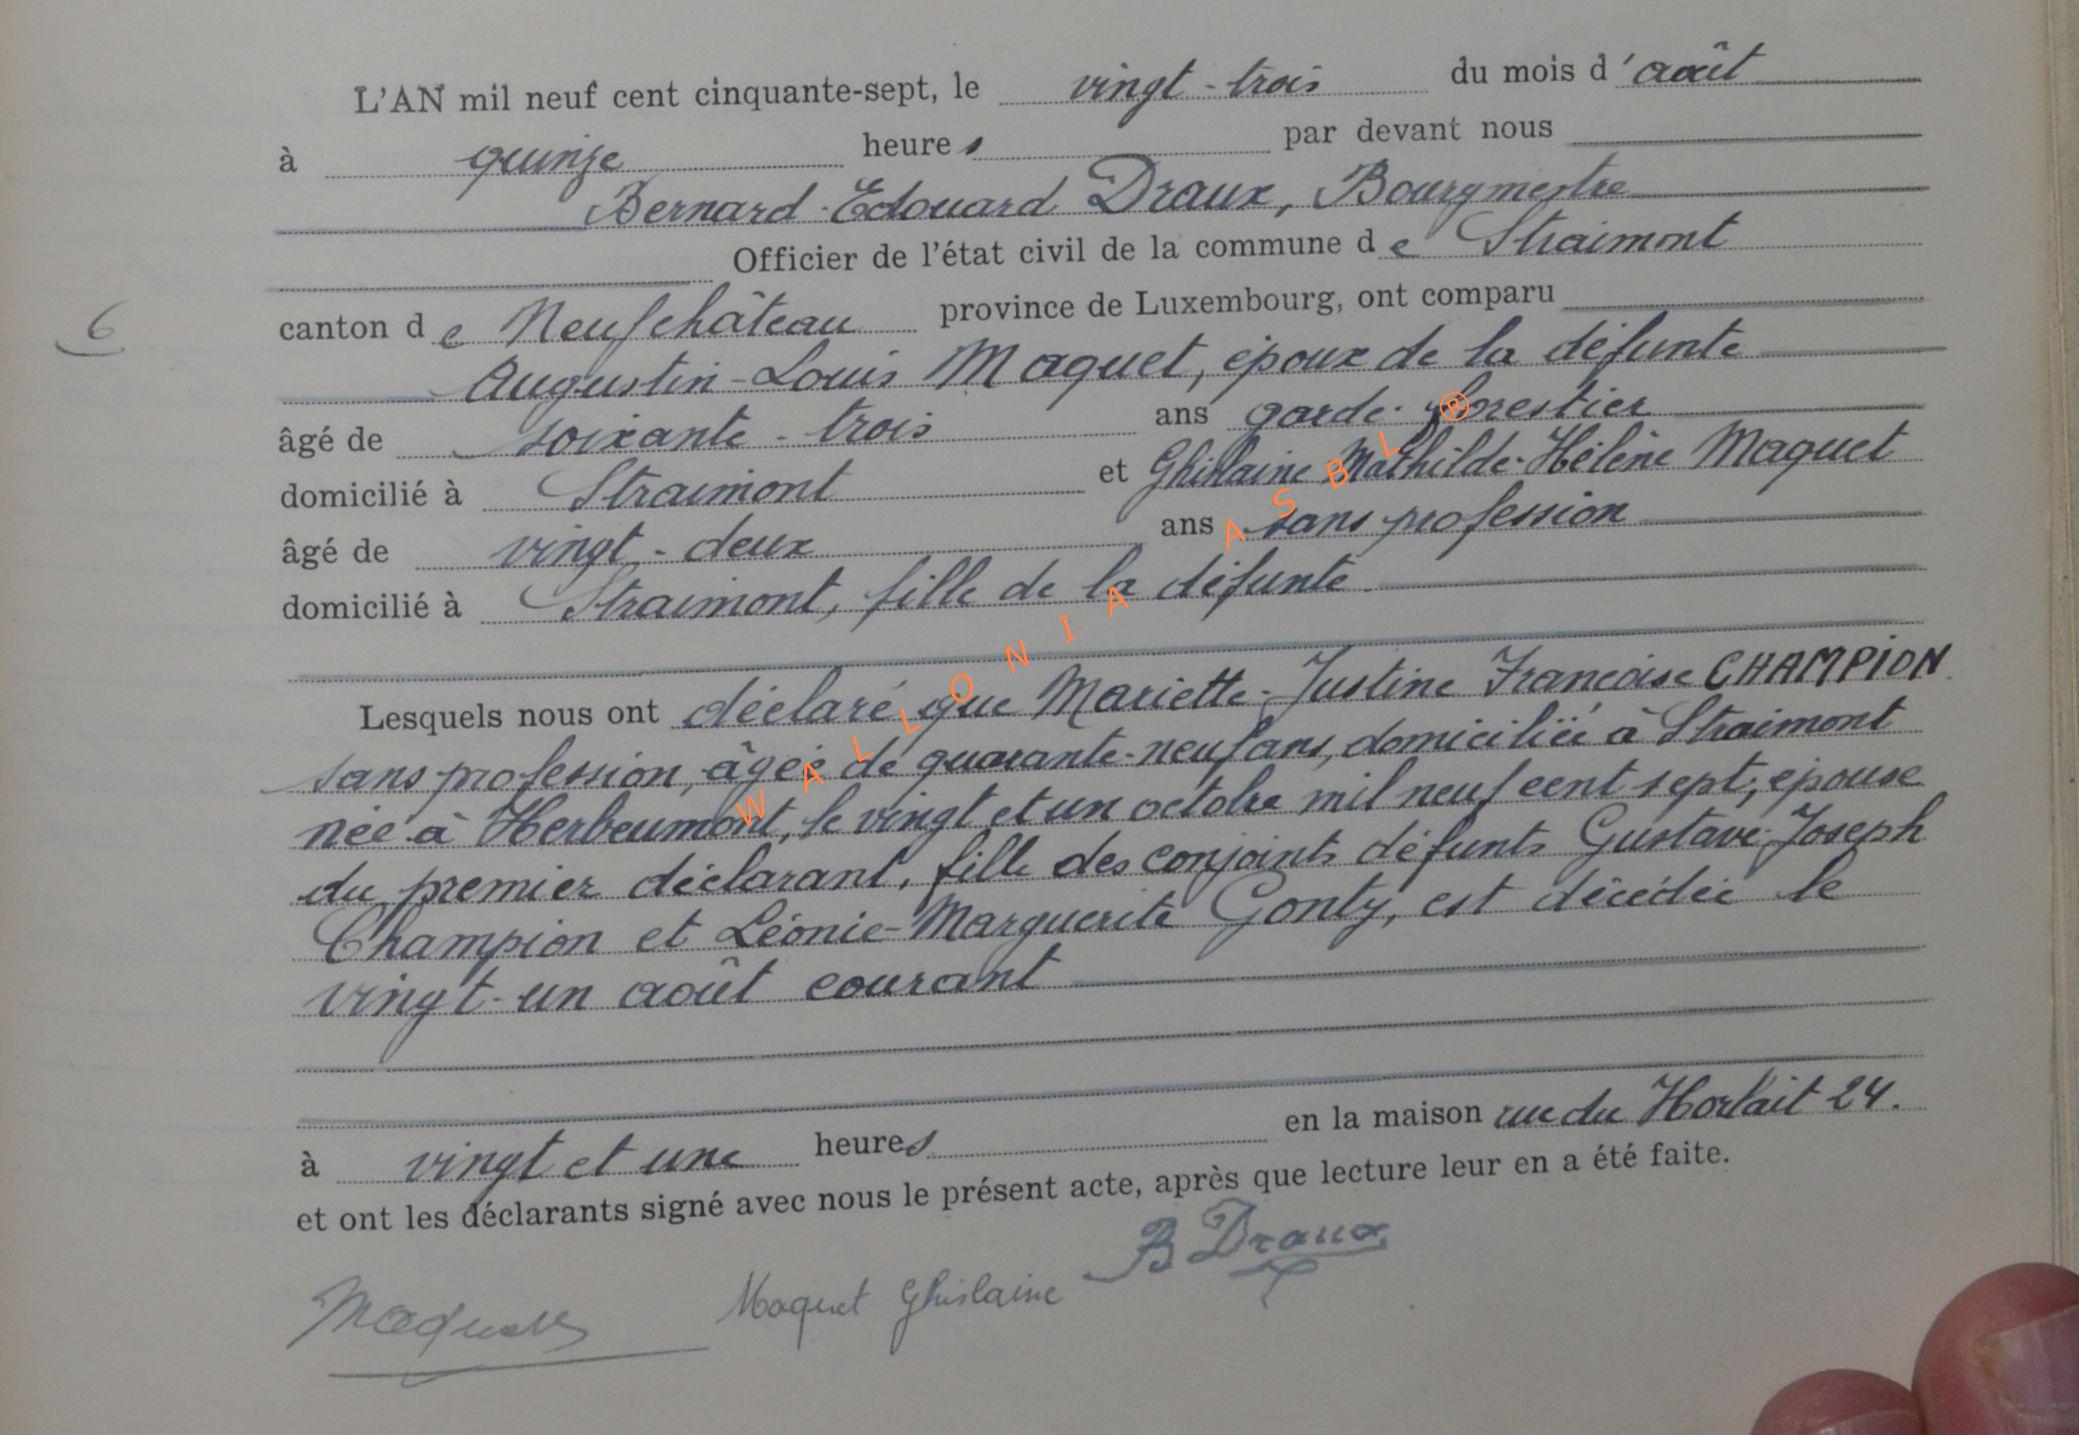 L'AN mil neuf cent cinquante-sept, le vingt-trois du mois d'août
à quinze heures par devant nous
Bernard-Edouard Draux, Bourgmestre
Officier de l'état civil de la commune de Straimont
6
canton de Neufchâteau province de Luxembourg, ont comparu
Augustin-Louis Maquet, époux de la défunte
âgé de soixante-trois ans garde-forestier
domicilié à Straimont et Ghislaine Mathilde-Hélène Maquet
âgé de vingt-deux ans sans profession
domicilié à Straimont, fille de la défunte
Lesquels nous ont déclaré que Mariette-Justine Françoise CHAMPION
sans profession, âgée de quarante-neuf ans, domiciliée à Straimont
née à Herbeumont, le vingt et un octobre mil neuf cent sept, épouse
du premier déclarant, fille des conjoints défunts Gustave-Joseph
Champion et Léonie-Marguerite Gonty, est décédée le
vingt-un août courant
à vingt et une heures en la maison rue du Horlait 24.
et ont les déclarants signé avec nous le présent acte, après que lecture leur en a été faite.
B Draux
Maquet Maquet Ghislaine
WALLONIA ASBL ®